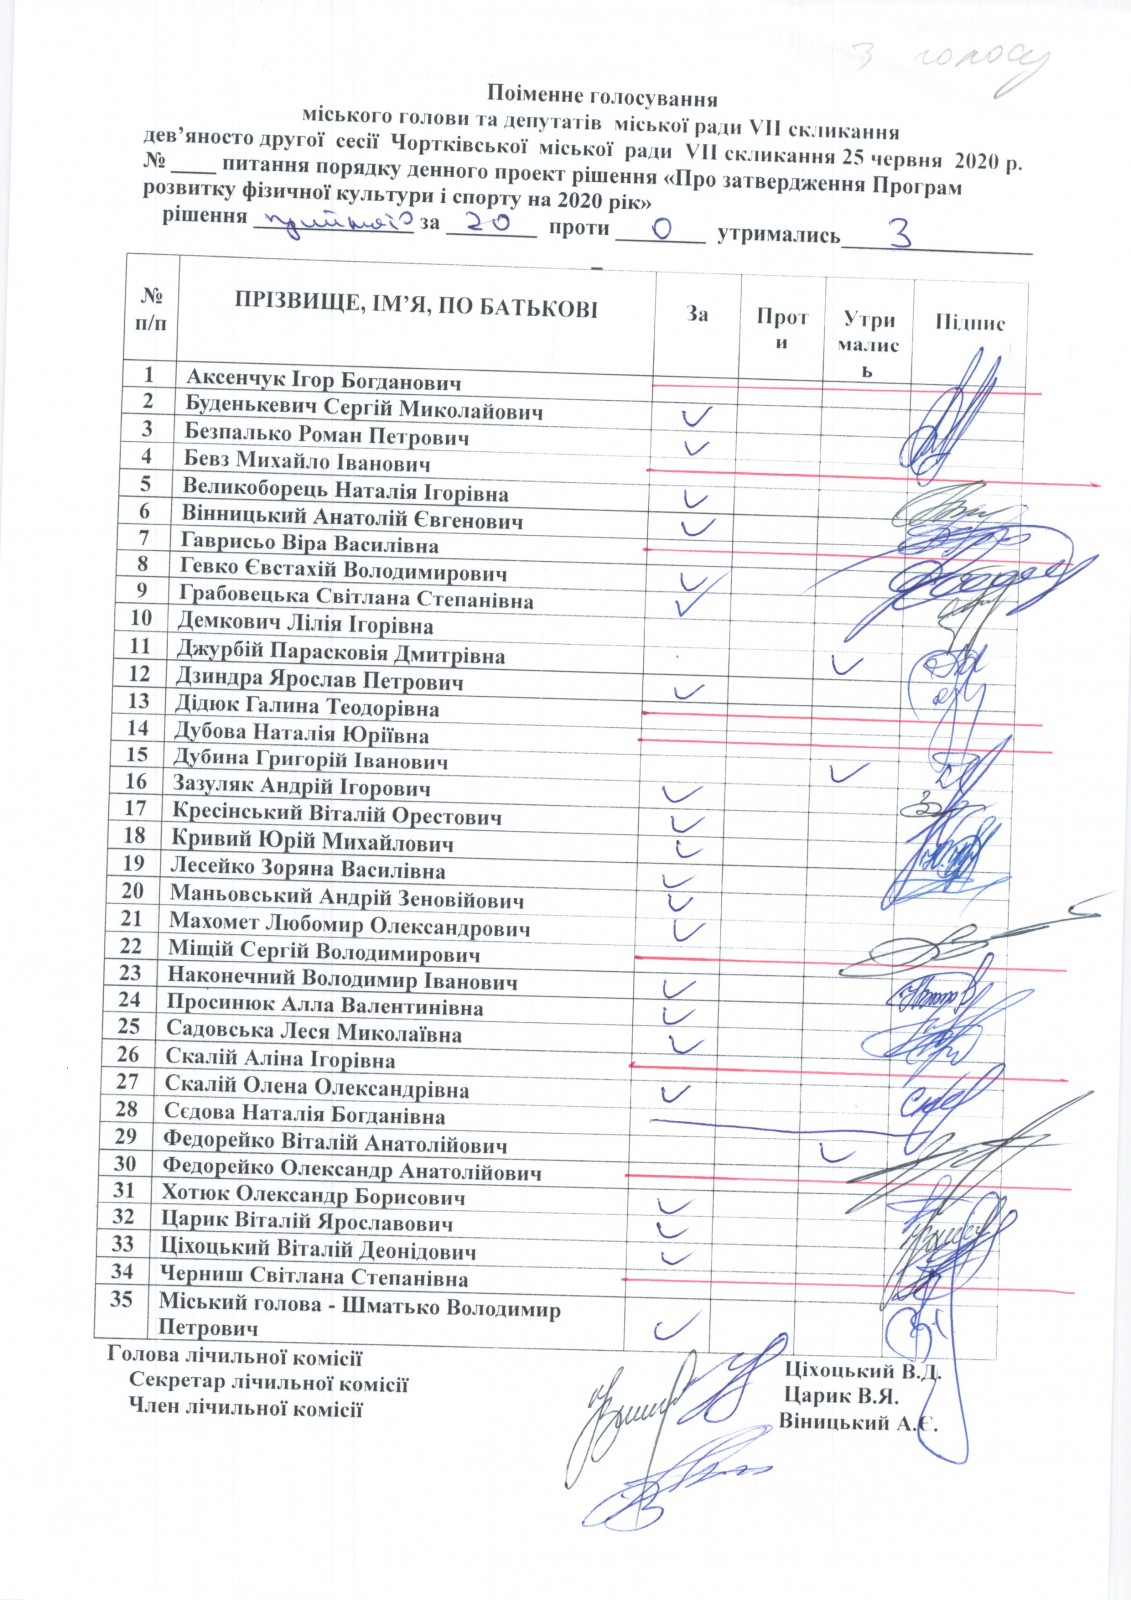 З голосу
Поіменне голосування
міського голови та депутатів міської ради VII скликання
дев’яносто другої сесії Чортківської міської ради VII скликання 25 червня 2020 р.
№ ____ питання порядку денного проект рішення «Про затвердження Програм
розвитку фізичної культури і спорту на 2020 рік»
рішення прийнято за 20 проти 0 утримались 3
№ п/п ПРІЗВИЩЕ, ІМ’Я, ПО БАТЬКОВІ За Проти Утрималися Підпис
1 Аксенчук Ігор Богданович
2 Буденькевич Сергій Миколайович ✓
3 Безпалько Роман Петрович ✓
4 Бевз Михайло Іванович
5 Великоборець Наталія Ігорівна ✓
6 Вінницький Анатолій Євгенович ✓
7 Гаврисьо Віра Василівна
8 Гевко Євстахій Володимирович ✓
9 Грабовецька Світлана Степанівна ✓
10 Демкович Лілія Ігорівна
11 Джурбій Парасковія Дмитрівна ✓
12 Дзиндра Ярослав Петрович ✓
13 Дідюк Галина Теодорівна
14 Дубова Наталія Юріївна
15 Дубина Григорій Іванович ✓
16 Зазуляк Андрій Ігорович ✓
17 Кресінський Віталій Орестович ✓
18 Кривий Юрій Михайлович ✓
19 Лесейко Зоряна Василівна ✓
20 Маньовський Андрій Зеновійович ✓
21 Махомет Любомир Олександрович ✓
22 Міщій Сергій Володимирович
23 Наконечний Володимир Іванович ✓
24 Просинюк Алла Валентинівна ✓
25 Садовська Леся Миколаївна ✓
26 Скалій Аліна Ігорівна
27 Скалій Олена Олександрівна ✓
28 Сєдова Наталія Богданівна
29 Федорейко Віталій Анатолійович ✓
30 Федорейко Олександр Анатолійович
31 Хотюк Олександр Борисович ✓
32 Царик Віталій Ярославович ✓
33 Ціхоцький Віталій Деонідович ✓
34 Черниш Світлана Степанівна
35 Міський голова - Шматько Володимир
Петрович ✓
Голова лічильної комісії Ціхоцький В.Д.
Секретар лічильної комісії Царик В.Я.
Член лічильної комісії Віницький А.Є.